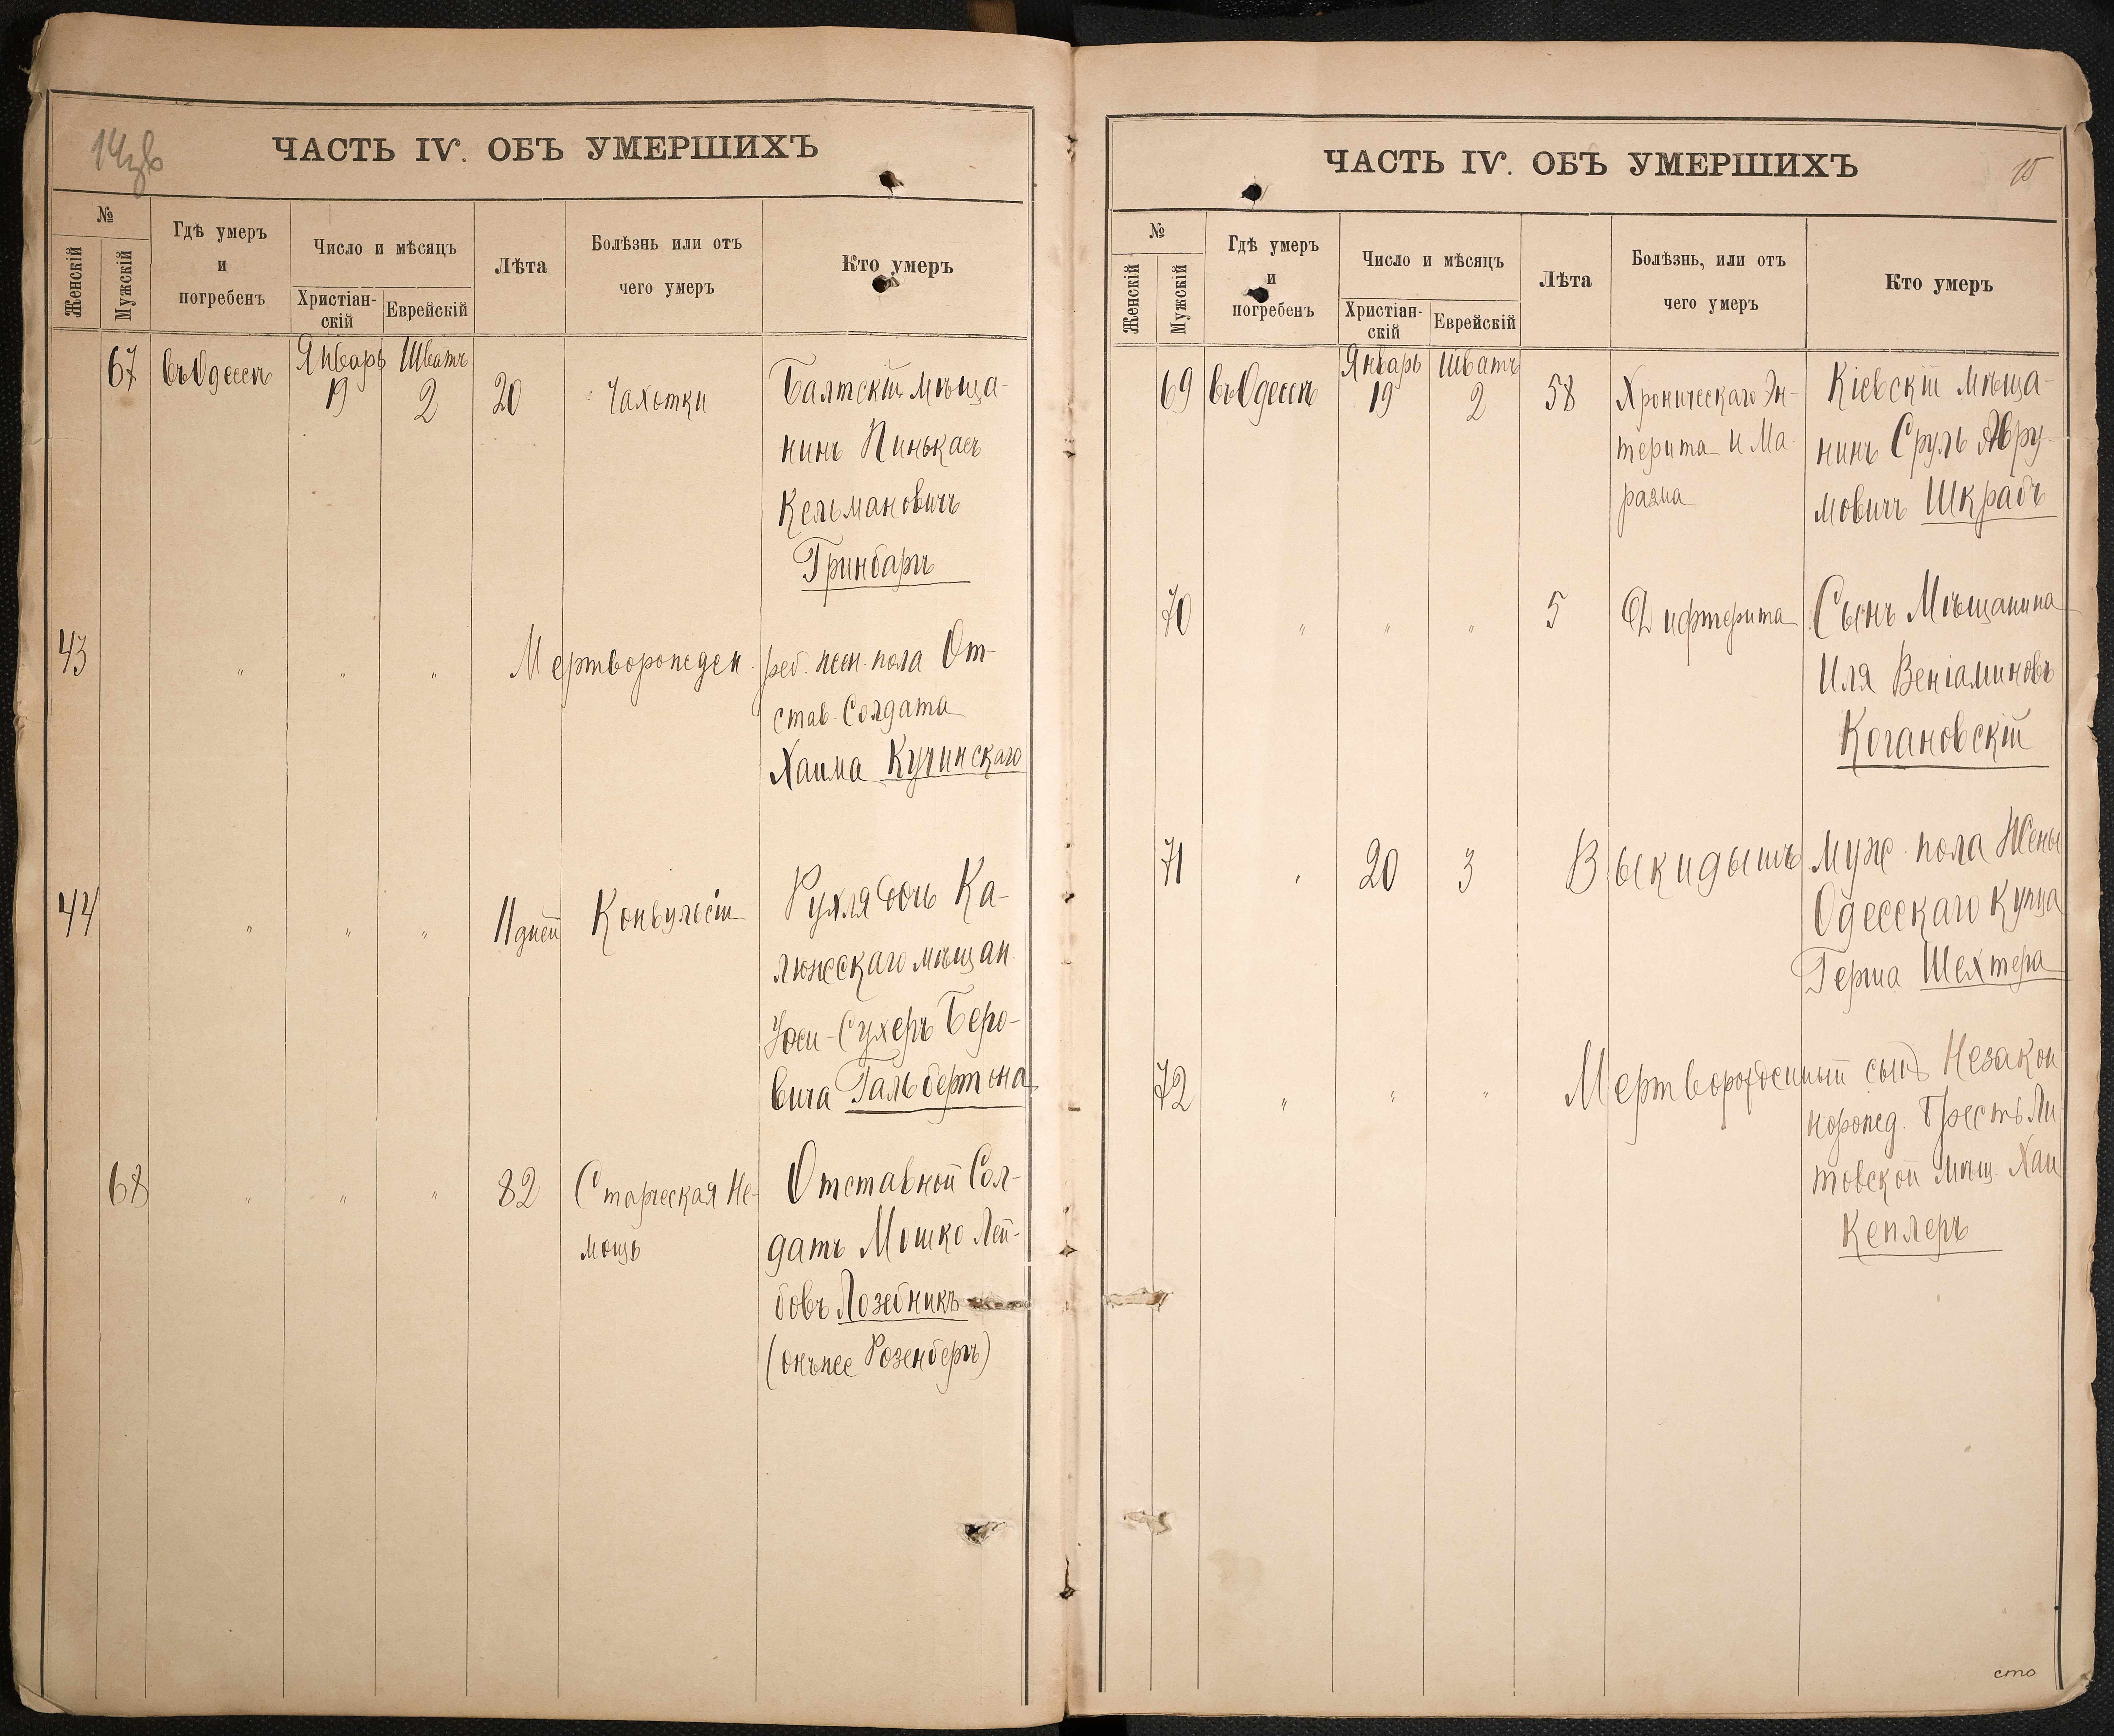 14зв
ЧАСТЬ IV. ОБЪ УМЕРШИХЪ
№
Женскій
Мужскій
Гдѣ умеръ
и
погребенъ
Число и мѣсяцъ
Христіан-
скій
Еврейскій
Лѣта
Болѣзнь или отъ
чего умеръ
Кто умеръ
67 въ Одессѣ Январь 19 Шватъ 2 20 Чахотки Балтскій мѣща-
нинъ Пинькасъ
Кельмановичъ
Гринбаргъ
43 " " " Мертворожден. реб. жен. пола От-
став. Солдата
Хаима Кучинскаго
44 " " " 11 дней Конвульсіи Рухля дочь Ка-
люжскаго мѣщан.
Сухеръ Беро-
вича Гальбертона
68 " " " 82 Старческая Не- Отставной Сол-
мощь датъ Мошко Лей-
бовъ Лозебникъ
(онъ же Розенбергъ)
ЧАСТЬ IV. ОБЪ УМЕРШИХЪ
15
№
Женскій
Мужскій
Гдѣ умеръ
и
погребенъ
Число и мѣсяцъ
Христіан-
скій
Еврейскій
Лѣта
Болѣзнь, или отъ
чего умеръ
Кто умеръ
69 въ Одессѣ Январь 19 Шватъ 2 58 Хроническаго Эн- Кіевскій мѣща-
терита и Ма- нинъ Сруль Авру-
разма мовичъ Шкрабъ
70 " " " 5 Дифтерита Сынъ Мѣщанина
Иля Веніаминовъ
Когановскій
71 " 20 3 Выкидышъ муж. пола Жены
Одесскаго Купца
Герша Шехтера
72 " " " Мертворожденный сынъ Незакон
норожд. Брестъ Ли
товской мѣщ. Хаи
Кеплеръ
сто